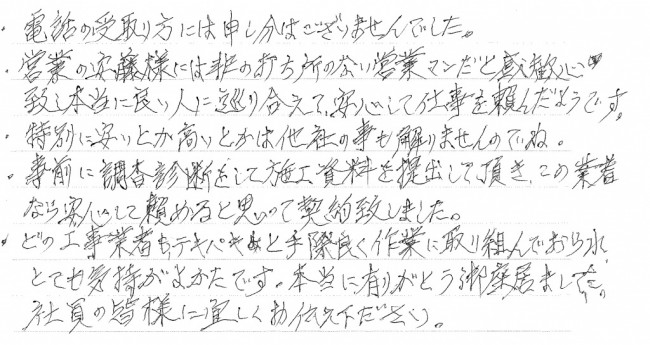 ・電話の受取り方には申し分はございませんでした。
・営業の安藤様には非の打ち所のない営業マンだと感歎し
致し本当に良い人に巡り合えて、安心して仕事を頼んだようです。
・特別に安いとか高いとかは他社の事も解りませんのでね。
・事前に調査診断をして施工資料を提出して頂き、この業者
なら安心して頼めると思って契約致しました。
・どの工事業者もテキパキと手際良く作業に取り組んでおられ
とても気持がよかたです。本当に有りがとう御座居ました。
社員の皆様に宜しくお伝え下ださい。